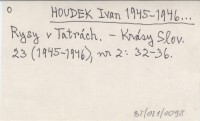 O
HOUDEK Ivan 1945-1946...
Rysy v Tatrách. - Krásy Slov.
23 (1945-1946), nr 2: 32-36.